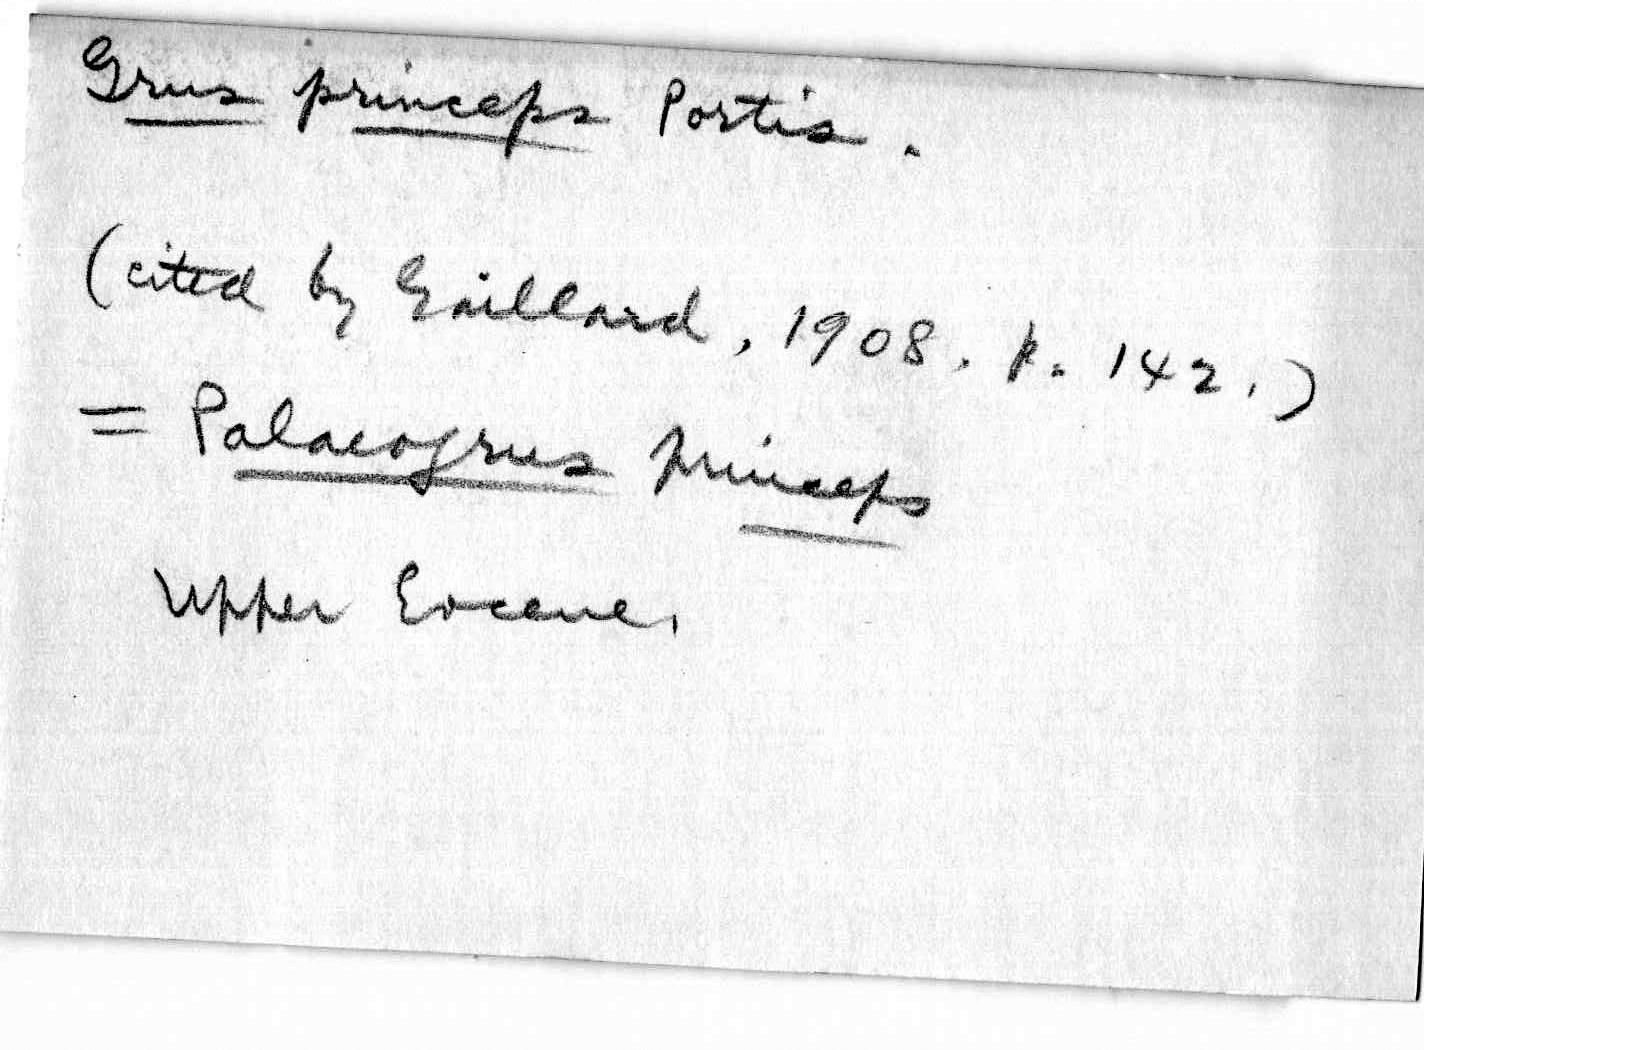 Grus princeps Portis.
(cited by Gaillard, 1908. p. 142.)
= Palaeogrus princeps
Upper Eocene.